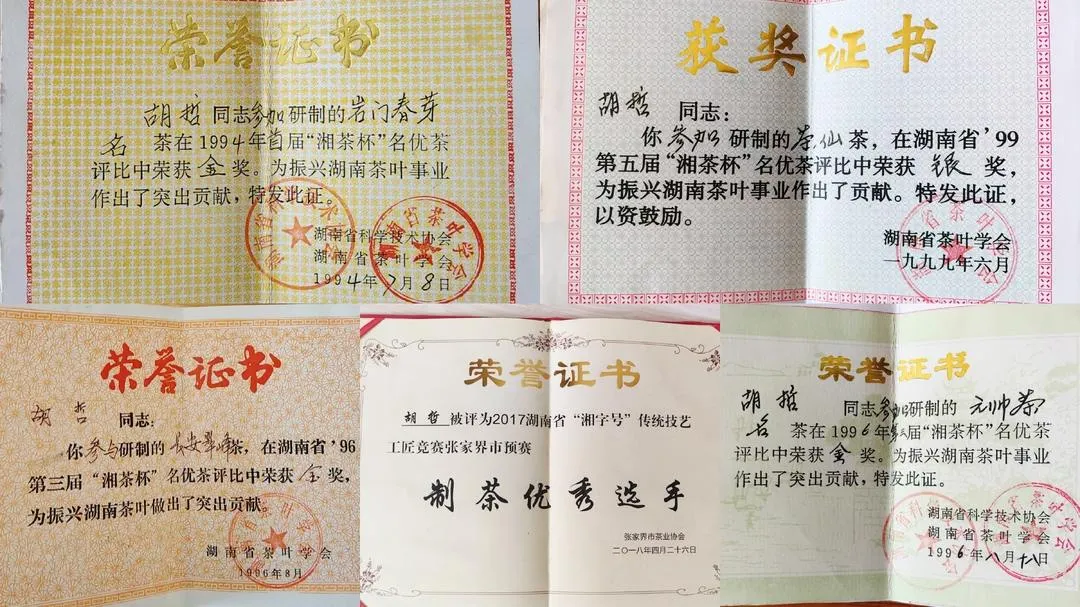 荣誉证书
胡哲同志参加研制的岩门春芽
名茶在1994年首届“湘茶杯”名优茶
评比中荣获金奖。为振兴湖南茶叶事业
作出了突出贡献,特发此证。
湖南省科学技术协会
湖南省茶叶学会
1994年7月8日
获奖证书
胡哲同志:
你参加研制的茶仙茶,在湖南省’99
第五届“湘茶杯”名优茶评比中荣获银奖,
为振兴湖南茶叶事业作出了贡献。特发此证,
以资鼓励。
湖南省茶叶学会
一九九九年六月
荣誉证书
胡哲同志:
你参与研制的长安翠峰茶,在湖南省’96
第三届“湘茶杯”名优茶评比中荣获金奖,
为振兴湖南茶叶做出了突出贡献。
湖南省茶叶学会
1996年8月
荣誉证书
胡哲被评为2017湖南省“湘字号”传统技艺
工匠竞赛张家界市预赛
制茶优秀选手
张家界市茶业协会
二〇一八年四月二十六日
荣誉证书
胡哲同志参加研制的元帅茶
名茶在1996年第三届“湘茶杯”名优茶
评比中荣获金奖。为振兴湖南茶叶事业
作出了突出贡献,特发此证。
湖南省科学技术协会
湖南省茶叶学会
1996年八月十八日